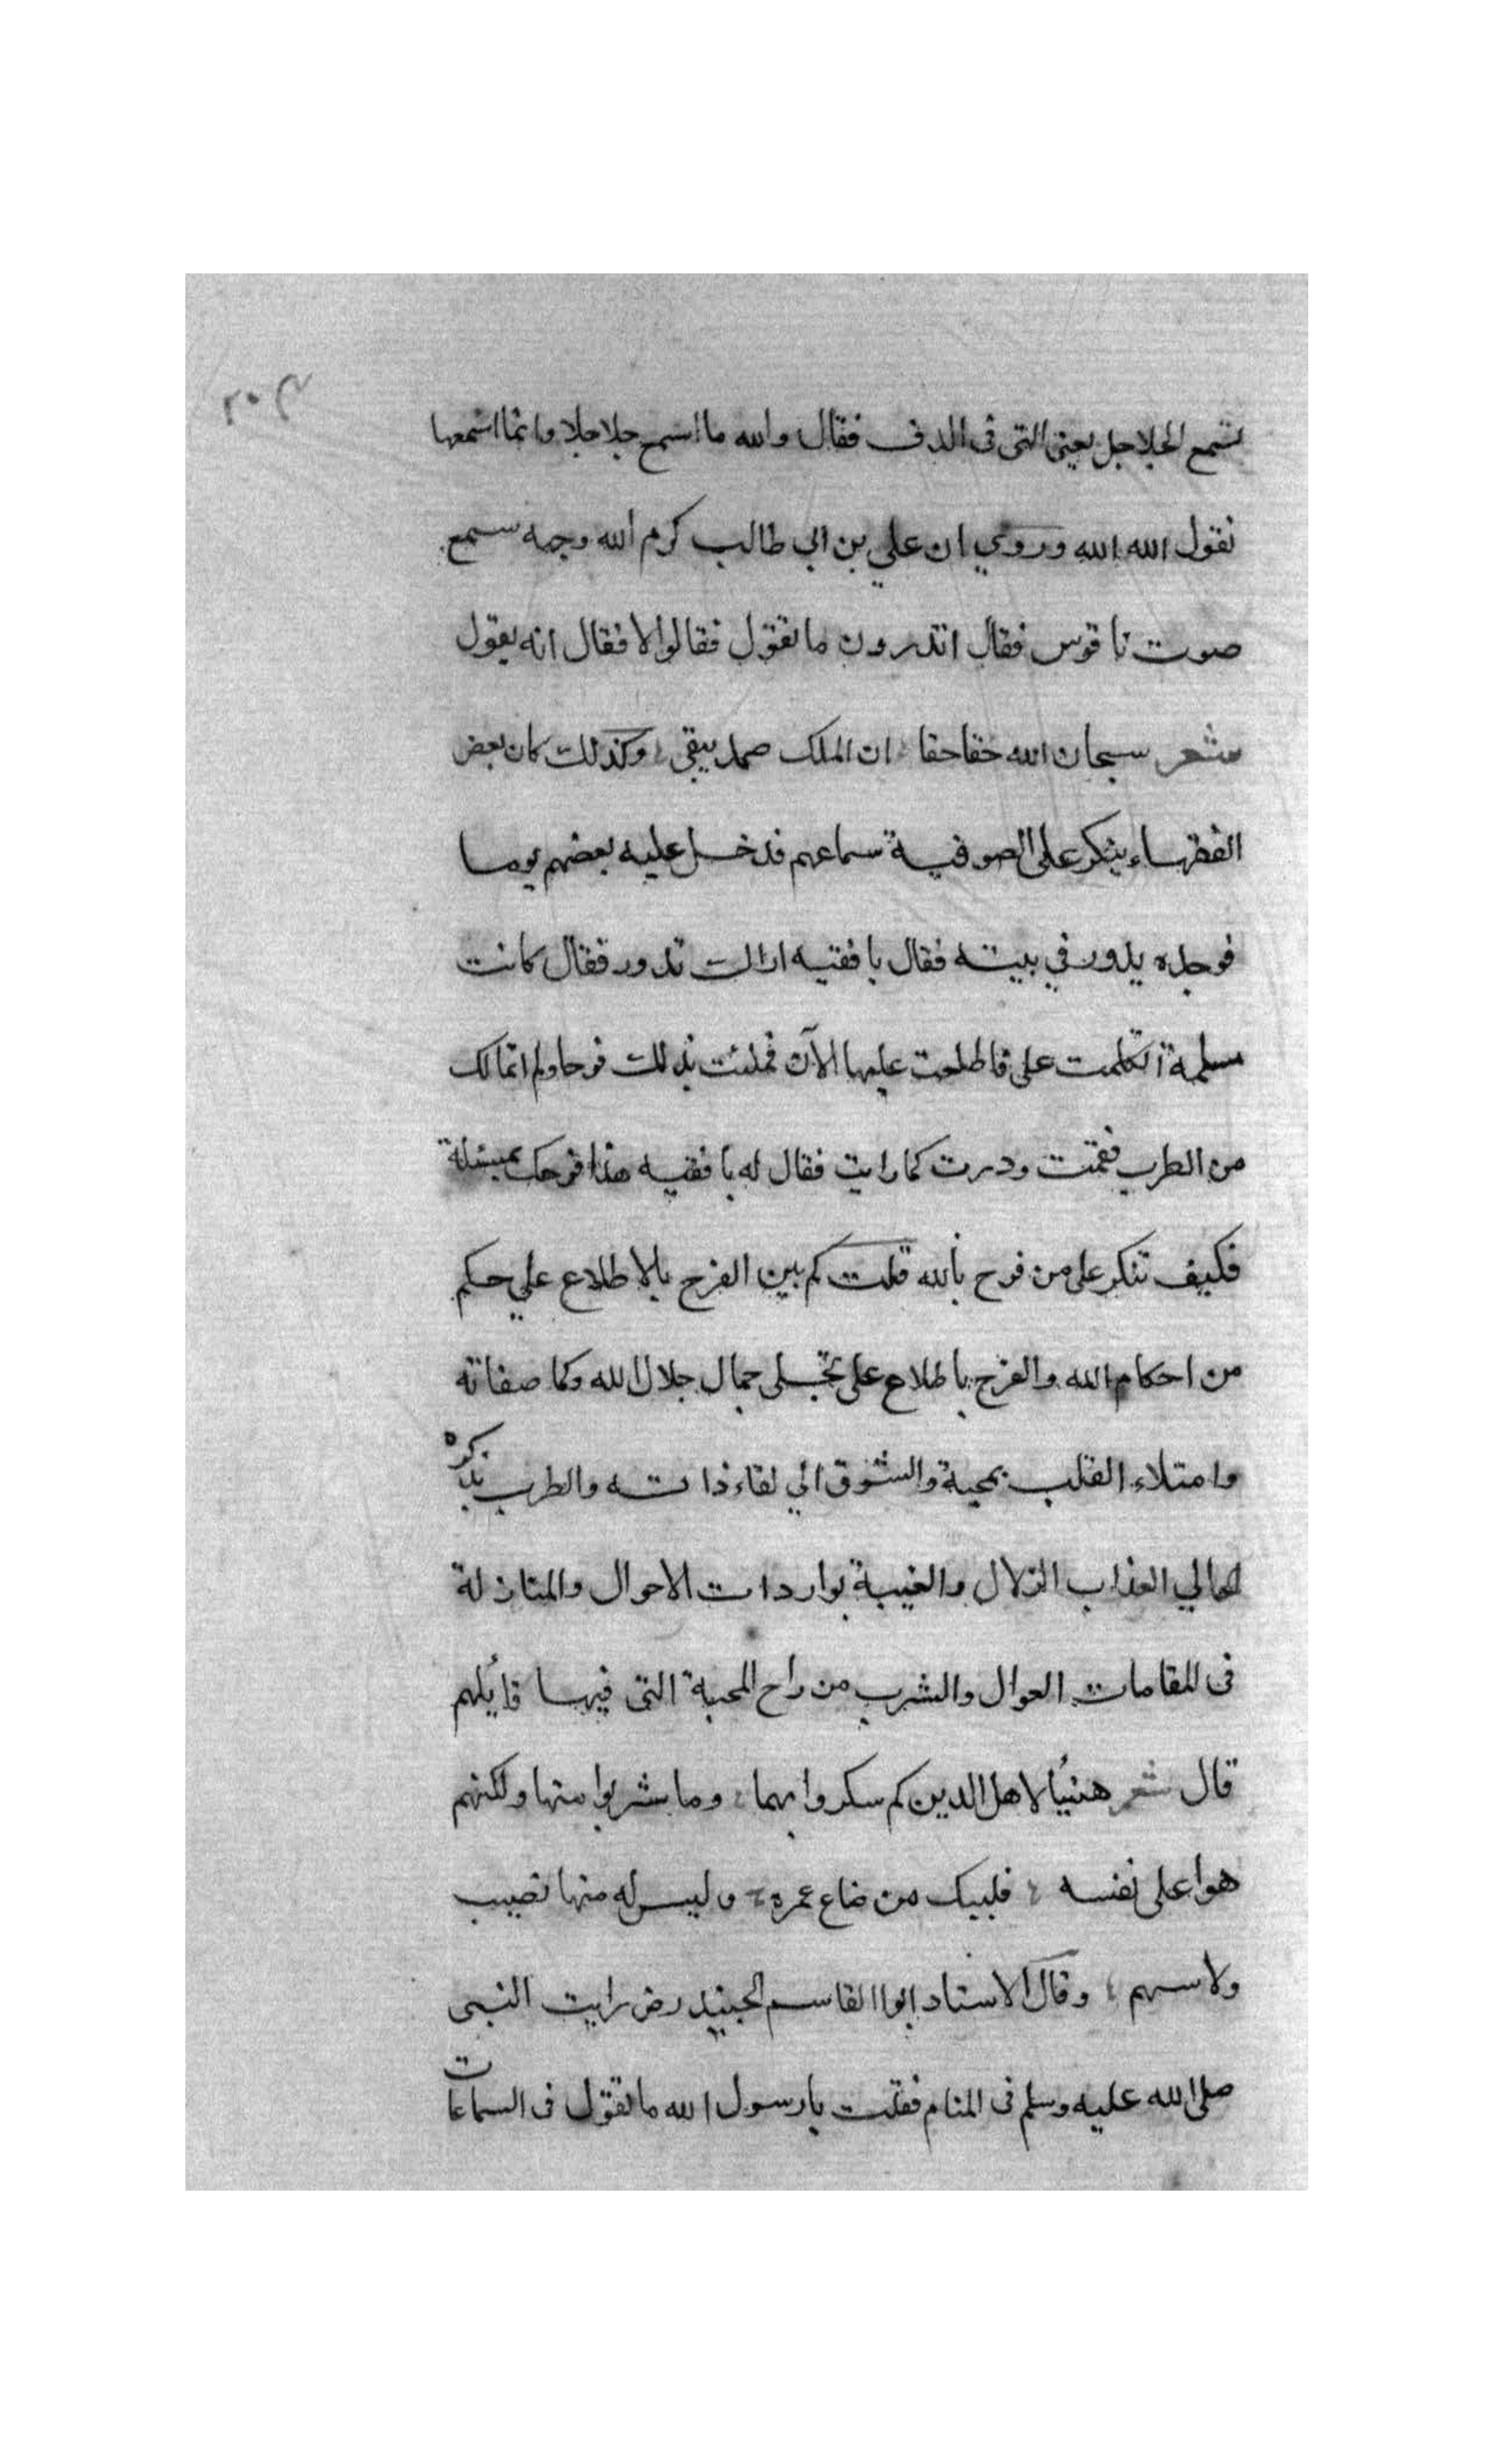 تسمع الجلاجل يعني التي في الدف فقال والله ما اسمع جلاجلا وانما اسمعها
تقول الله الله وروي ان علي بن ابي طالب كرم الله وجهه سمع
صوت ناقوس فقال اتدرون ما تقول فقالوا لا فقال انه يقول
شعر سبحان الله حقا حقا ان الملك صمد يبقى وكذلك كان بعض
الفقهاء ينكر على الصوفية سماعهم فدخل عليه بعضهم يوما
فوجده يدور في بيته فقال يا فقيه اراك تدور فقال كانت
مسلمة اشكلت علي فاطلعت عليها الآن فملئت بذلك فرحا ولم اتمالك
من الطرب فقمت ودرت كما رايت فقال له يا فقيه هذا فرحك بمسئلة
فكيف تنكر على من فرح بالله قلت كم بين الفرح بالاطلاع علي حكم
من احكام الله والفرح باطلاع على تجلى جمال جلال الله وكما صفاته
وامتلاء القلب بمحبة والشوق الي لقاء ذاته والطرب بذكره
الحالي العذاب الزلال والغيبة بواردات الاحوال والمنازلة
في المقامات العوال والشرب من راح المحبة التي فيها قائلهم
قال شعر هنيئا لاهل الدين كم سكروا بهما وما شربوا منها ولكنهم
هوا على نفسه فليبك من ضاع عمره وليس له منها نصيب
ولا سهم وقال الاستاد ابوا القاسم الجنيد رض رايت النبى
صلى الله عليه وسلم في المنام فقلت يا رسول الله ما تقول في السماعات